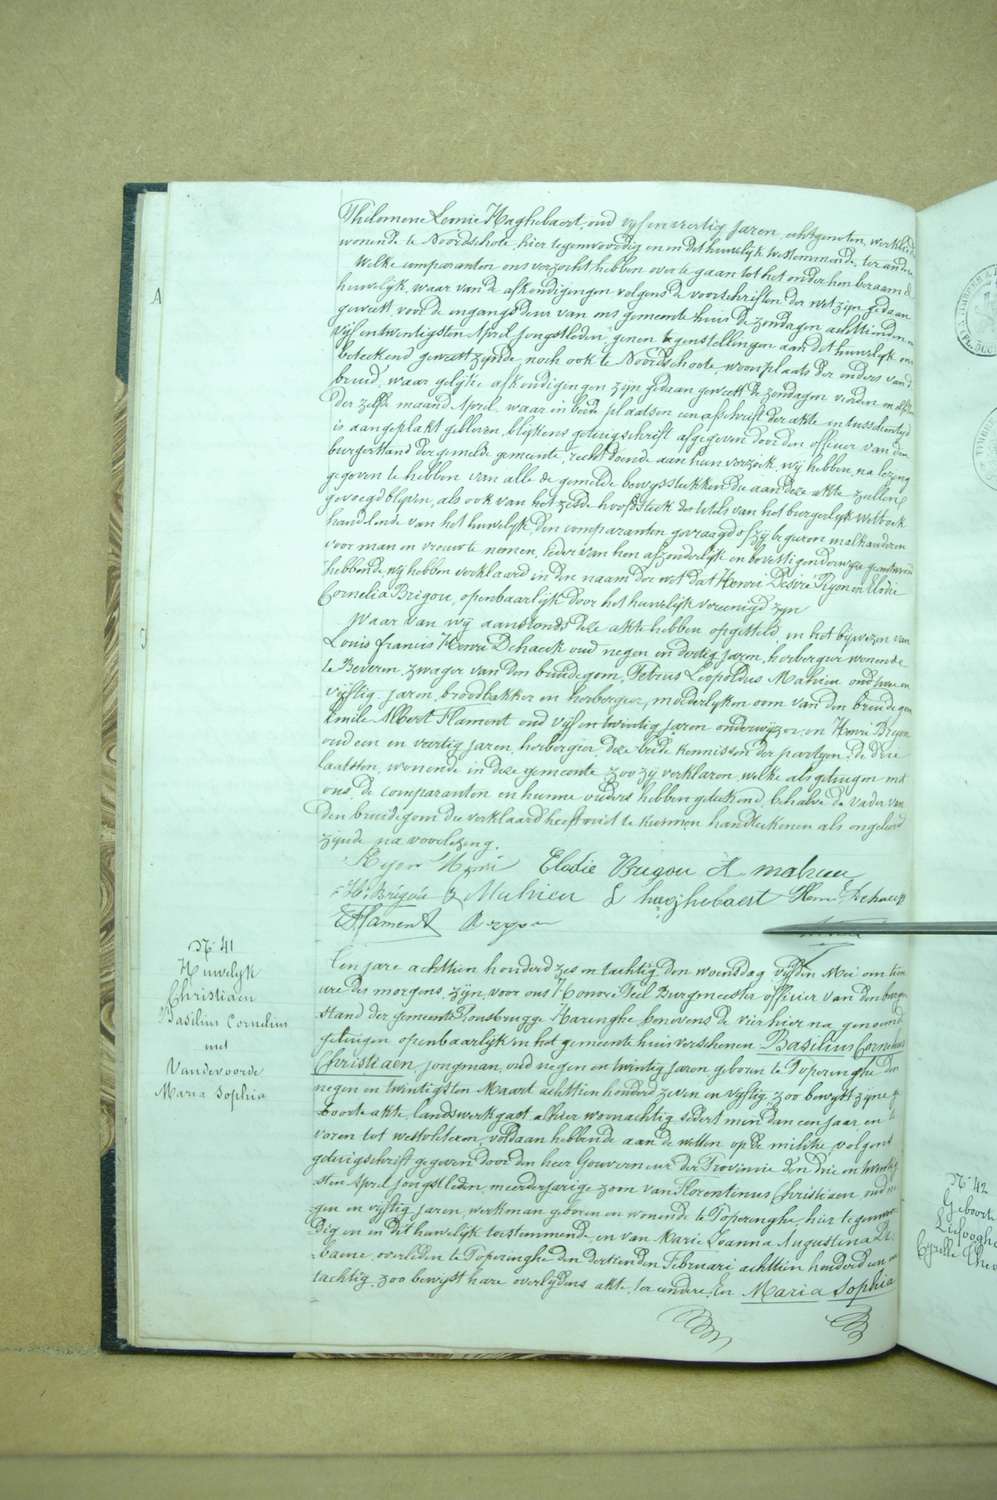 Philomene Leonie Haghebaert, oud vyf en veertig Jaren, echtgenoten, werklieden
wonende te Noordschote, hier tegenwoordig en in dit huwelijk toestemmende, ter andere
Welke comparanten ons verzocht hebben over te gaan tot het onder hen beraamd
huwelijk, waar van de afkondigingen volgens de voorschriften der wet zijn gedaan
geweest voor de ingangdeur van ons gemeente huis de zondagen achttienden en
vijfentwintigsten April jongstleden, geenen tegenstellingen aan dit huwelijk ons
beteekend geweest zijnde, noch ook te Noordschoote, woonplaats der ouders van de
bruid, waar gelijke afkondigingen zijn gedaan geweest de zondagen vierden en elfden
der zelfde maand April, waar in beide plaatsen een afschrift der akte in tusschentijd
is aangeplakt gebleven, blijkens getuigschrift afgegeven door den officier van den
burgerstand der gemelde gemeente, recht doende aan hun verzoek, wij hebben, na lezing
gegeven te hebben van alle de gemelde bewysstukken die aan deze akte zullen
gevoegd blijven, als ook van het zesde hoofdstuk des titels van het burgerlijk Wetboek
handelende van het huwelijk, den comparanten gevraagd of zij begeren malkanderen
voor man en vrouw te nemen, ieder van hen afzonderlijk en bevestigenderwijze geantwoord
hebbende, wij hebben verklaard in den naam der wet dat Henri Desiré Ryon en Elodie
Cornelia Brigou, openbaarlijk door het huwelijk vereenigd zijn
Waar van wij aanstonds deze akte hebben opgesteld, in het bijwezen van
Louis Francis Henri Dehaeck oud negen en dertig jaren, herbergier wonende
te Beveren, zwager van den bruidegom, Petrus Leopoldus Mahieu oud en
vijftig jaren, broodbakker en herbergier, moederlijken oom van den bruidegom
Emile Albert Flament oud vijf en twintig jaren onderwijzer, en Henri Brigou
oud een en veertig jaren, herbergier deze beide kennissen der partyen; de drie
laatsten, wonende in deze gemeente zoo zij verklaren, welke als getuigen met
ons, de comparanten en hunne ouders hebben geteekend, behalve de vader van
den bruidegom die verklaard heeft niet te kunnen handteekenen als ongeleerd
zijnde na voorlezing.
Ryon Henri Elodie Brigou A mahieu
H. Brigou Mahieu L haeghebaert Henri Dehaeck
E Flament
N 41
Huwelyk
Christiaen
Basilius Cornelius
met
Vandevoorde
Maria Sophia
Ten jare achttien honderd zes en tachtig den woensdag vijfden Mei om tien
ure des morgens, zijn, voor ons Honoré Feil Burgmeester officier van den burger
stand der gemeente Rousbrugge Haringhe benevens de vier hier na genoemde
getuigen openbaarlijk in het gemeente huis verschenen Basilius Cornelius
Christiaen, jongman, oud negen en twintig Jaren geboren te Poperinghe den
negen en twintigsten Maart achttien honderd zeven en vijftig zoo bewyst zijne ge
boorte akte, landswerkgast alhier woonachtig sedert min dan een jaar en te
voren tot westvleteren, voldaan hebbende aan de wetten op de militie, volgens
getuigschrift gegeven door den heer Gouverneur der Provincie den drie en twintig
sten April jongstleden, meerderjarige zoon van Florentinus Christiaen, oud ne
gen en vijftig jaren, werkman geboren en wonende te Poperinghe, hier tegenwoor
dig en in dit huwelijk toestemmende, en van Marie Joanna Augustina De
baene, overleden te Poperinghe den dertienden Februari achttien honderd een en
tachtig, zoo bewyst hare overlijdens akte, ter eendere, En Maria Sophia
N 42
Geboorte